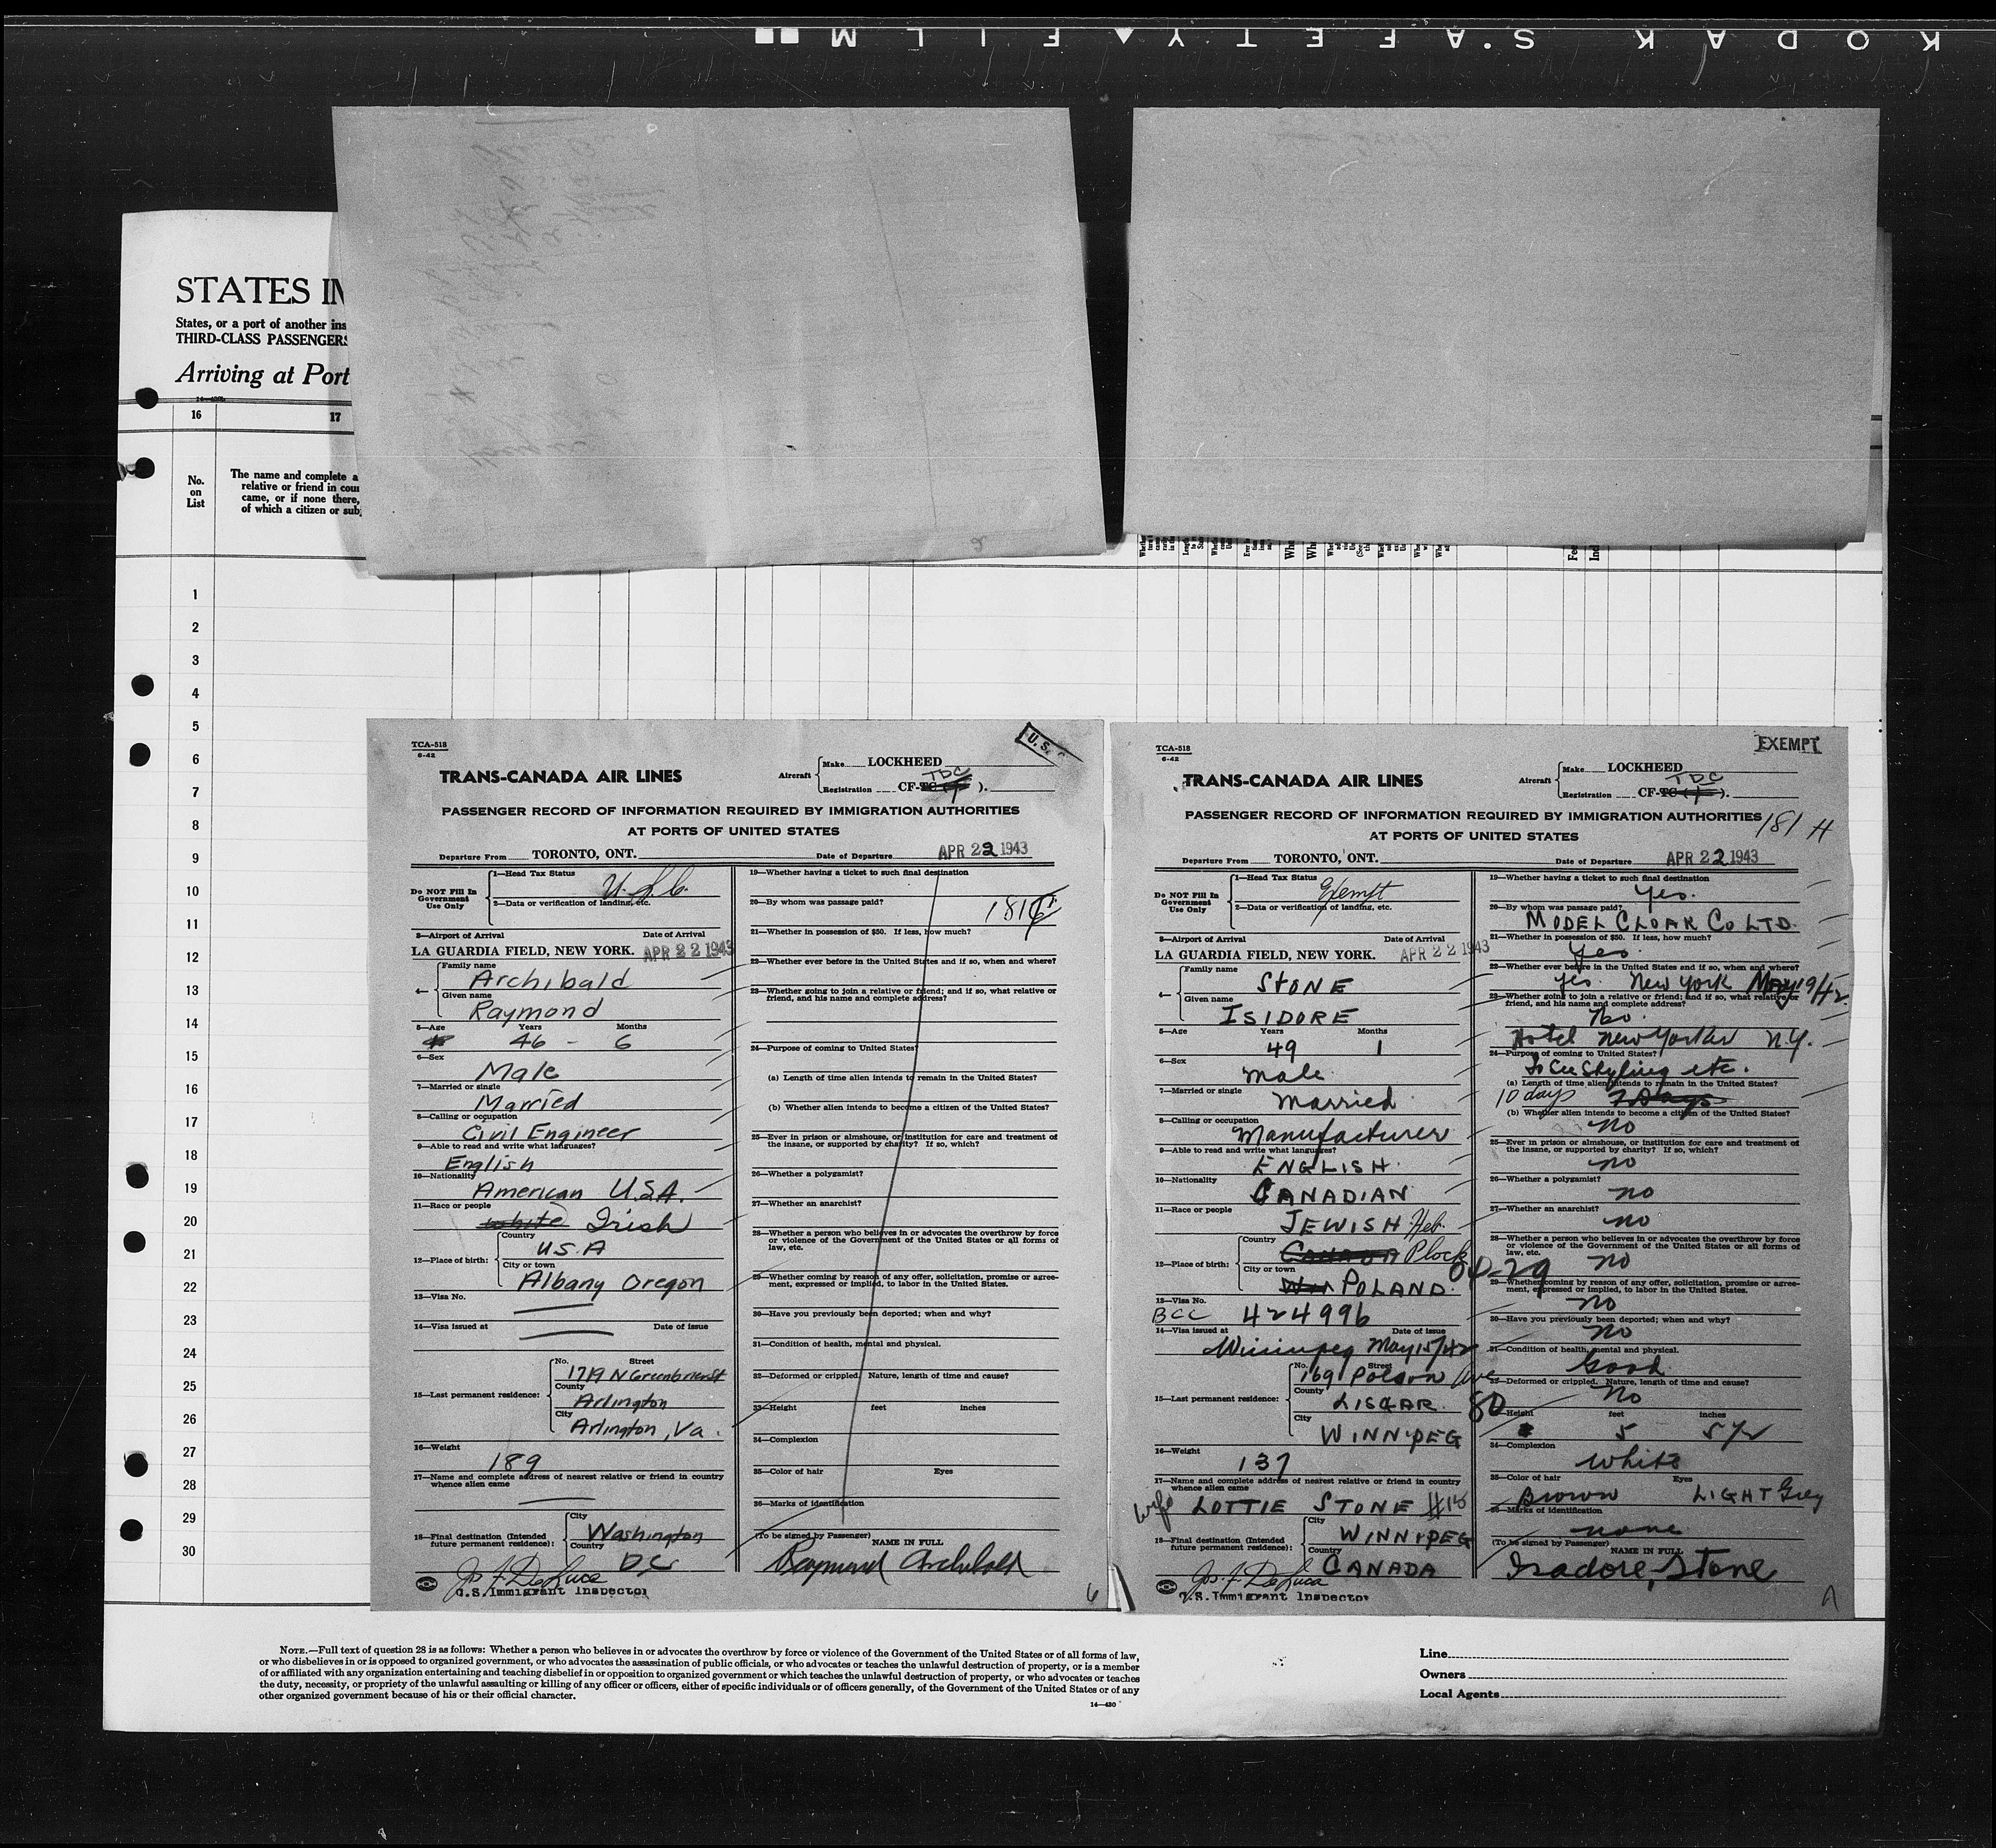 KODAK SAFETY FILM
STATES IM
States, or a port of another ins
THIRD-CLASS PASSENGERS
Arriving at Port
16 17
No.
on
List
The name and complete a
relative or friend in coun
came, or if none there,
of which a citizen or sub
1
2
3
4
5
6
7
8
9
10
11
12
13
14
15
16
17
18
19
20
21
22
23
24
25
26
27
28
29
30
TCA-518
6-42
U.S.C
TRANS-CANADA AIR LINES
Aircraft Make LOCKHEED
TDC
Registration CF-TC ( ).
PASSENGER RECORD OF INFORMATION REQUIRED BY IMMIGRATION AUTHORITIES
AT PORTS OF UNITED STATES
Departure From TORONTO, ONT. Date of Departure APR 22 1943
Do NOT Fill In
Government
Use Only
1—Head Tax Status U.S.C.
2—Data or verification of landing, etc.
3—Airport of Arrival Date of Arrival
LA GUARDIA FIELD, NEW YORK. APR 22 1943
4— Family name
Archibald
Given name
Raymond
5—Age Years Months
46 - 6
6—Sex
Male
7—Married or single
Married
8—Calling or occupation
Civil Engineer
9—Able to read and write what languages?
English
10—Nationality
American U.S.A.
11—Race or people
white Irish
12—Place of birth: Country
U.S.A
City or town
Albany Oregon
13—Visa No.
14—Visa issued at Date of issue
15—Last permanent residence: No. Street
1719 N Greenbrier St
County
Arlington
City
Arlington, Va.
16—Weight
189
17—Name and complete address of nearest relative or friend in country
whence alien came
18—Final destination (Intended
future permanent residence):
City
Washington
Country
DC
Jos. F. De Luca
U.S. Immigrant Inspector
19—Whether having a ticket to such final destination
20—By whom was passage paid?
181
21—Whether in possession of $50. If less, how much?
22—Whether ever before in the United States and if so, when and where?
23—Whether going to join a relative or friend; and if so, what relative or
friend, and his name and complete address?
24—Purpose of coming to United States?
(a) Length of time alien intends to remain in the United States?
(b) Whether alien intends to become a citizen of the United States?
25—Ever in prison or almshouse, or institution for care and treatment of
the insane, or supported by charity? If so, which?
26—Whether a polygamist?
27—Whether an anarchist?
28—Whether a person who believes in or advocates the overthrow by force
or violence of the Government of the United States or all forms of
law, etc.
29—Whether coming by reason of any offer, solicitation, promise or agree-
ment, expressed or implied, to labor in the United States.
30—Have you previously been deported; when and why?
31—Condition of health, mental and physical.
32—Deformed or crippled. Nature, length of time and cause?
33—Height feet inches
34—Complexion
35—Color of hair Eyes
36—Marks of identification
(To be signed by Passenger) NAME IN FULL
Raymond Archibald
6
TCA-518
6-42
EXEMPT
TRANS-CANADA AIR LINES
Aircraft Make LOCKHEED
TDC
Registration CF-TC ( ).
PASSENGER RECORD OF INFORMATION REQUIRED BY IMMIGRATION AUTHORITIES
AT PORTS OF UNITED STATES
181 H
Departure From TORONTO, ONT. Date of Departure APR 22 1943
Do NOT Fill In
Government
Use Only
1—Head Tax Status
Exempt
2—Data or verification of landing, etc.
3—Airport of Arrival Date of Arrival
LA GUARDIA FIELD, NEW YORK. APR 22 1943
4— Family name
STONE
Given name
ISIDORE
5—Age Years Months
49 1
6—Sex
Male
7—Married or single
Married
8—Calling or occupation
Manufacturer
9—Able to read and write what languages?
ENGLISH
10—Nationality
CANADIAN
11—Race or people
JEWISH Heb.
12—Place of birth: Country
CANADA Plock
City or town
POLAND.
04-29
13—Visa No.
BCC 424996
14—Visa issued at Date of issue
Winnipeg May 15/42
15—Last permanent residence: No. Street
169 Polson Ave
County
LISGAR
80
City
WINNIPEG
16—Weight
137
17—Name and complete address of nearest relative or friend in country
whence alien came
wife LOTTIE STONE #15
18—Final destination (Intended
future permanent residence):
City
WINNIPEG
Country
CANADA
Jos. F. De Luca
U.S. Immigrant Inspector
19—Whether having a ticket to such final destination
Yes.
20—By whom was passage paid?
MODEL CLOAK CO LTD.
21—Whether in possession of $50. If less, how much?
Yes
22—Whether ever before in the United States and if so, when and where?
yes. New York May 19/42.
23—Whether going to join a relative or friend; and if so, what relative or
friend, and his name and complete address?
No.
Hotel New Yorker N.Y.
24—Purpose of coming to United States?
To See Styling etc.
(a) Length of time alien intends to remain in the United States?
10 days 7 Days
(b) Whether alien intends to become a citizen of the United States?
no
25—Ever in prison or almshouse, or institution for care and treatment of
the insane, or supported by charity? If so, which?
no
26—Whether a polygamist?
no
27—Whether an anarchist?
no
28—Whether a person who believes in or advocates the overthrow by force
or violence of the Government of the United States or all forms of
law, etc.
no
29—Whether coming by reason of any offer, solicitation, promise or agree-
ment, expressed or implied, to labor in the United States.
no
30—Have you previously been deported; when and why?
no
31—Condition of health, mental and physical.
Good
32—Deformed or crippled. Nature, length of time and cause?
No
33—Height feet inches
5 5 1/2
34—Complexion
White
35—Color of hair Eyes
Brown LIGHT Grey
36—Marks of identification
none
(To be signed by Passenger) NAME IN FULL
Isadore Stone
NOTE.—Full text of question 28 is as follows: Whether a person who believes in or advocates the overthrow by force or violence of the Government of the United States or of all forms of law,
or who disbelieves in or is opposed to organized government, or who advocates the assassination of public officials, or who advocates or teaches the unlawful destruction of property, or is a member
of or affiliated with any organization entertaining and teaching disbelief in or opposition to organized government or which teaches the unlawful destruction of property, or who advocates or teaches
the duty, necessity, or propriety of the unlawful assaulting or killing of any officer or officers, either of specific individuals or of officers generally, of the Government of the United States or of any
other organized government because of his or their official character.
14—430
Line
Owners
Local Agents